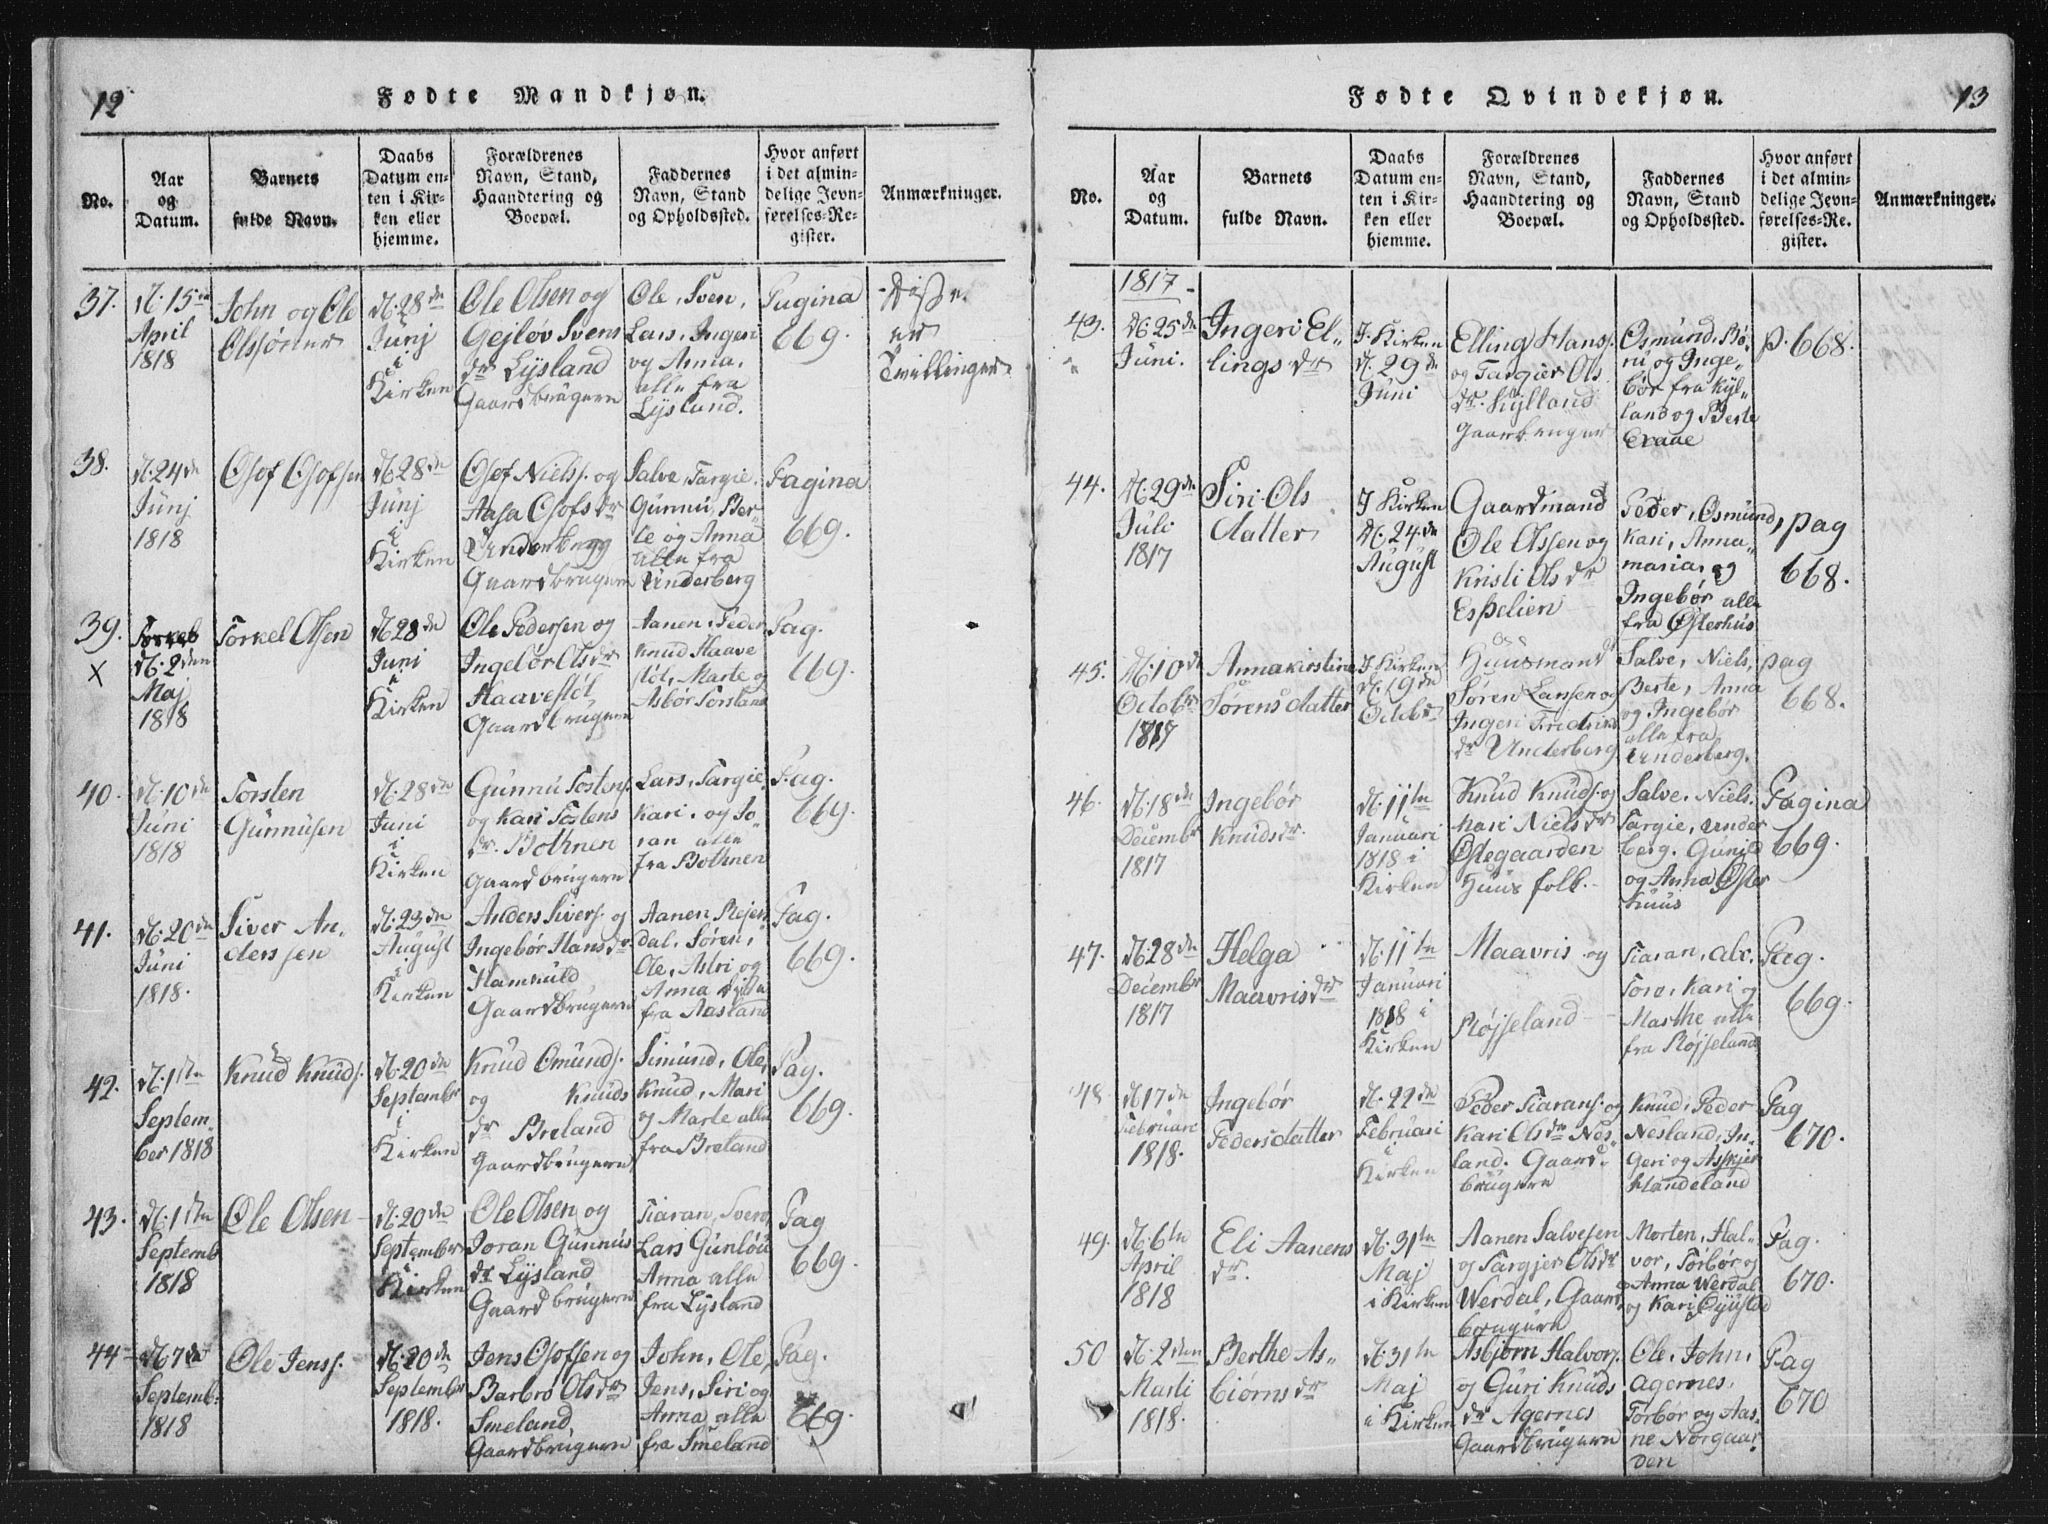 12
Fødte Mandkjøn.
No.
Aar
og
Datum.
Barnets
fulde Navn.
Daabs
Datum en-
ten i Kir-
ken eller
hjemme.
Forældrenes
Navn, Stand,
Haandtering og
Boepæl.
Faddernes
Navn, Stand
og Opholdssted.
Hvor anført
i det almin-
delige Jevn-
førelses-Re-
gister.
Anmærkninger.
37.
d. 15de
April
1818
John og Ole
Olssøner
d. 28de
Junj
i
Kirken
Ole Olsen og
Gejløv Svens
dr Lÿsland
Gaardbrugern
Ole, Sven,
Lars, Ingeri
og Anna,
alle fra
Lÿsland.
Pagina
669.
Disse
er
Tvillinger
38.
d. 24de
Junj
1818
Osof Osofsen
d. 28de
Junj
i
Kirken
Osof Nielss. og
Aasa Osofs dr
Underberg
Gaardbrugern
Salve, Targie,
Gunnu, Ber-
te og Anna
alle fra
Underberg
Pagina
669.
39.
x
Torkel
d. 2den
Maj
1818
Torkel Olsen
d. 28de
Juni
i
Kirken
Ole Pedersen og
Ingebör Ols dr
Haavestöl
Gaardbrugern
Aanen, Peder
Knud Haave
stöl, Marte og
Asbör Torsland
Pag.
669.
40.
d. 10de
Juni
1818
Torsten
Gunnusen
d. 28de
Juni
i
Kirken
Gunnu Tostens.
og Kari Tostens
dr. Bothnen
Gaardbrugern
Lars, Targie,
Kari, og Jo-
ran alle
fra Bothnen
Pag.
669.
41.
d. 20de
Juni
1818.
Siver An-
derssen
d. 23de
August
i
Kirken
Anders Sivers. og
Ingebör Hans dr
Hamkuld
Gaardbrugern
Aanen Rejers
dal, Søren,
Ole, Astri og
Anna
fra Aasland
Pag.
669.
42.
d. 1ste
Septem-
ber 1818
Knud Knuds.
d. 20de
Septembr
i
Kirken
Knud Omunds.
og Knuds
dr Breland
Gaardbrugern
Simund, Ole,
Knud, Mari
og Marte alle
fra Breland
Pag.
669.
43.
d. 1ste
Septembr
1818
Ole Olsen
d. 20de
Septembr
i
Kirken
Ole Olsen og
Joran Gunnus
dr Lÿsland
Gaardbrugern
Tiaran, Sven,
Lars Gunlöu
Anna alle
fra Lÿsland
Pag
669.
44
d. 7de
Septemb.
1818
Ole Jenss.
d. 20de
Septembr
1818.
Jens Osofsen og
Barbro Ols dr
Smeland,
Gaardbrugern
John, Ole,
Jens, Siri og
Anna, alle
fra Smeland
Pag.
669.
13
Fødte Qvindekjøn.
No.
Aar
og
Datum.
Barnets
fulde Navn.
Daabs
Datum en-
ten i Kir-
ken eller
hjemme.
Forældrenes
Navn, Stand,
Haandtering og
Boepæl.
Faddernes
Navn, Stand
og Opholdssted.
Hvor anført
i det almin-
delige Jevn-
førelses-Re-
gister.
Anmærkninger.
1817
43.
d. 25de
Juni.
Ingeri El-
lings dr
I Kirken
d. 29de
Juni
Elling Hans.
og Targier Ols
dr. Kÿlland
Gaarbruger
Osmund, Bö-
ru og Inge-
bör fra Kÿl-
land og Berte
Eraae
p. 668.
44.
d. 29de
Juli
1817
Siri Ols
datter
I Kirken
d. 24de
August
Gaardmand
Ole Olssen og
Kristi Ols dr
Espelien
Peder, Osmund,
Kari, Anna-
maria, og
Ingebör alle
fra Österhus
pag
668.
45.
d. 10de
Octobr
1817
Annakirstine
Sørens datter
I Kirken
d. 19de
Octobr
Huusmand
Søren Larsen og
Ingeri Fredriks
dr Underberg
Salve, Niels,
Berte, Anna
og Ingebör
alle fra
Underberg.
pag
668.
46.
d. 18de
Decembr
1817
Ingebör
Knuds dr.
d. 11te
Januari
1818 i
Kirken
Knud Knuds. og
Kari Niels dr
Östegaarden
Huus folk.
Salve, Niels.
Targie, Under
berg. Gunild
og Anna Öster
huus
Pagina
669.
47.
d. 28de
Decembr
1817
Helga
Maavris dr
d. 11te
Januari
1818 i
Kirken
Maavris og
Röjseland
Tiaran, Alv,
Tore, Kari og
Marthe alle
fra Röjseland
Pag.
669.
48.
d. 17de
Februari
1818.
Ingebör
Pedersdatter
d. 22de
Februari
i
Kirken
Peder Tiarans. og
Kari Ols dr Nes-
land. Gaard-
brugern
Knud, Peder
Nesland, In-
geri og Askjer
Mandeland
Pag
670.
49.
d. 6te
April
1818
Eli Aanens
dr.
d. 31te
Maj
i Kirken
Aanen Salvesen
og Targjer Ols dr
Werdal, Gaard-
brugern
Morten, Hal-
vor, Törbör og
Anna Werdal
og Kari Eÿstad
Pag.
670.
50
d. 2den
Marti
1818.
Berthe As-
biørns dr
d. 31te
Maj
i Kirken
Asbjørn Halvors.
og Guri Knuds
dr Agernes
Gaardbrugern
Ole, John,
Agernes,
Torbor og Aas-
ne Norgaar-
den
Pag
670